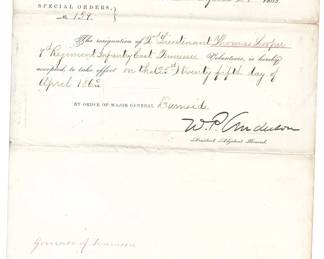 SPECIAL ORDERS,
No. 151.
The resignation of 2d Lieutenant Thomas Cooper
Regiment Infantry East Tennessee Volunteers, is hereby
accepted, to take effect on the (25th) twenty fifth day of
April 1863
BY ORDER OF MAJOR GENERAL Burnside.
W.P. Anderson
Assistant Adjutant General.
Governor of Tennessee